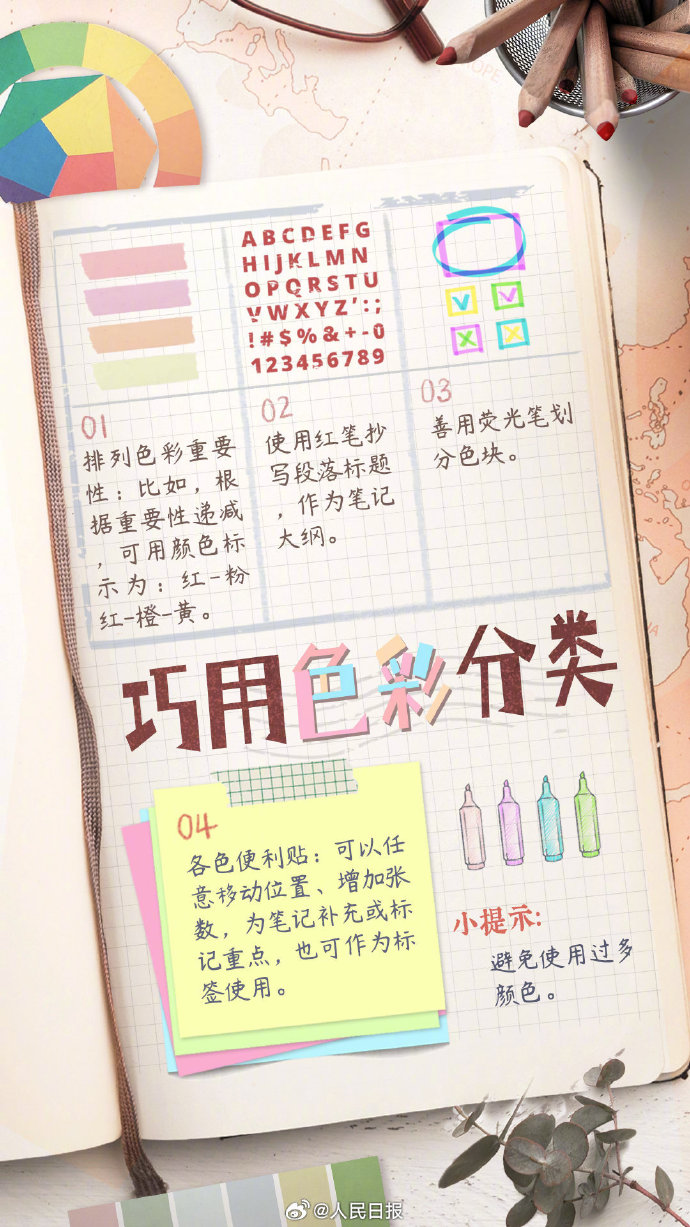 ABCDEFG
HIJKLMN
OPQRSTU
VWXYZ':;
!#$%&+-0
123456789
01
排列色彩重要
性：比如，根
据重要性递减
，可用颜色标
示为：红-粉
红-橙-黄。
02
使用红笔抄
写段落标题
，作为笔记
大纲。
03
善用荧光笔划
分色块。
巧用色彩分类
04
各色便利贴：可以任
意移动位置、增加张
数，为笔记补充或标
记重点，也可作为标
签使用。
小提示：
避免使用过多
颜色。
@人民日报